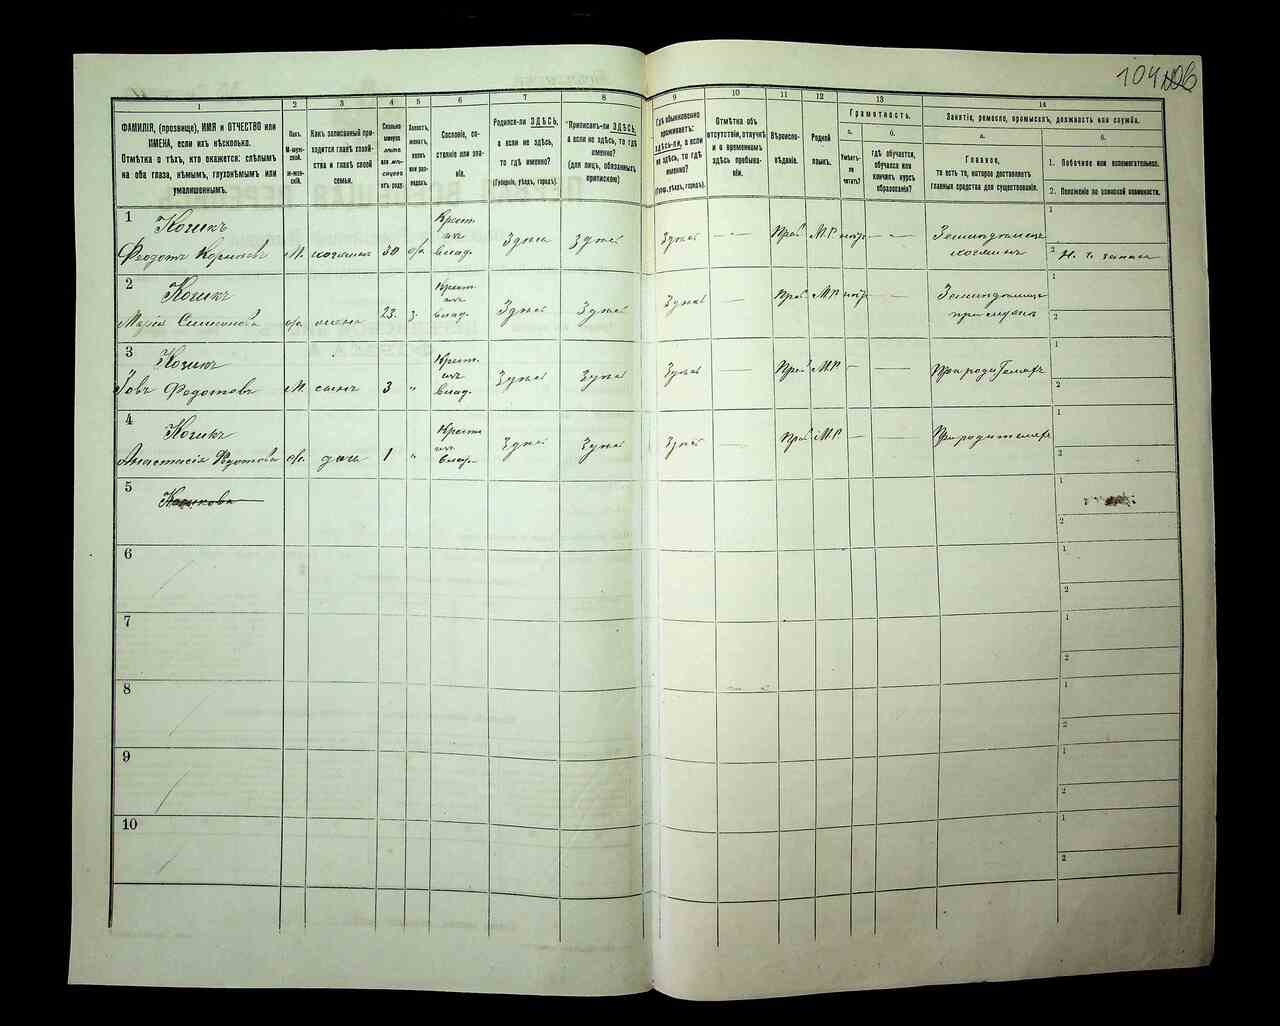 104 106
1
2
3
4
5
6
7
8
9
10
11
12
13
14
ФАМИЛІЯ, (прозвище), ИМЯ и ОТЧЕСТВО или
ИМЕНА, если ихъ нѣсколько.
Отмѣтка о тѣхъ, кто окажется: слѣпымъ
на оба глаза, нѣмымъ, глухонѣмымъ или
умалишеннымъ.
Полъ.
М-мужской.
Ж-женскій.
Какъ записанный при-
ходится главѣ хозяй-
ства и главѣ своей
семьи.
Сколько
минуло
лѣтъ
или мѣ-
сяцевъ
отъ роду.
Холостъ,
женатъ,
вдовъ
или раз-
веденъ.
Сословіе, со-
стояніе или зва-
ніе.
Родился-ли ЗДѢСЬ,
а если не здѣсь,
то гдѣ именно?
(Губернія, уѣздъ, городъ).
Приписанъ-ли ЗДѢСЬ,
а если не здѣсь, то гдѣ
именно?
(для лицъ, обязанныхъ
припискою)
Гдѣ обыкновенно
проживаетъ:
ЗДѢСЬ-ЛИ, а если
не здѣсь, то гдѣ
именно?
(Губ., уѣздъ, городъ).
Отмѣтка объ
отсутствіи, отлучкѣ
и о временномъ
здѣсь пребыва-
ніи.
Вѣроиспо-
вѣданіе.
Родной
языкъ.
Грамотность.
а.
б.
Умѣетъ-
ли
читать?
гдѣ обучается,
обучался или
кончилъ курсъ
образованія?
Занятіе, ремесло, промыселъ, должность или служба.
а.
б.
Главное,
то есть то, которое доставляетъ
главныя средства для существованія.
1. Побочное или вспомогательное.
2. Положеніе по воинской повинности.
1
Когикъ
Феодотъ Корниловъ М. хозяинъ 30 ж. Крест. изъ влад. Здѣсь Здѣсь Здѣсь — Прав. М.Р. нѣтъ — Земледѣлецъ хозяинъ
1
2 Н. ч. запаса
2
Когикъ
Марія Симонова ж. жена 23. з. Крест. изъ влад. Здѣсь Здѣсь Здѣсь — Прав. М.Р. нѣтъ — Земледѣлецъ при мужѣ
1
2
3
Когикъ
Іовъ Федотовъ М. сынъ 3 „ Крест. изъ влад. Здѣсь Здѣсь Здѣсь — Прав. М.Р. — — При родителяхъ
1
2
4
Когикъ
Анастасія Федотова ж. дочь 1 „ Крест. изъ влад. Здѣсь Здѣсь Здѣсь — Прав. М.Р. — — При родителяхъ
1
2
5
1
2
6
1
2
7
1
2
8
1
2
9
1
2
10
1
2